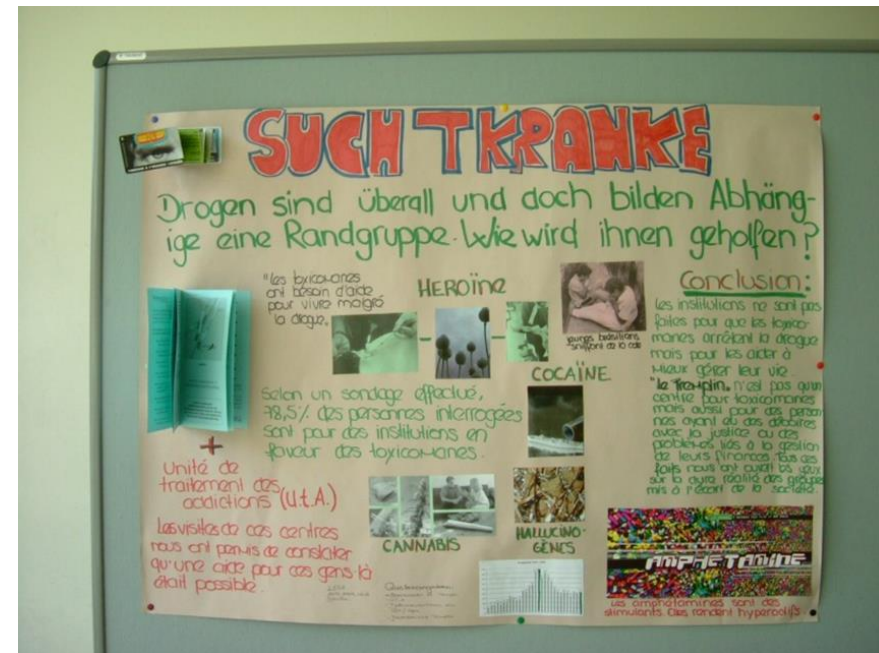 SUCHTKRANKE
Drogen sind überall und doch bilden Abhäng-
ige eine Randgruppe. Wie wird ihnen geholfen?
"Les toxicomanes
ont besoin d'aide
pour vivre malgré
la drogue„
HEROÏNE
jeunes brésiliens
sniffant de la cole
COCAÏNE
Selon un sondage effectué,
78,5% des personnes interrogées
sont pour des institutions en
faveur des toxicomanes.
+
Unité de
traitement des
addictions (U.t.A.)
Les visites de ces centres
nous ont permis de constater
qu'une aide pour ces gens là
était possible.
CANNABIS
HALLUCINO-
GÈNES
Conclusion:
Les institutions ne sont pas
faites pour que les toxico-
manes arrêtent la drogue
mais pour les aider à
mieux gérer leur vie.
"le Tremplin„ n'est pas qu'un
centre pour toxicomanes
mais aussi pour des person
nes ayant eu des déboires
avec la justice ou des
problèmes liés à la gestion
de leurs finances. Tous ces
faits nous ont ouvert les yeux
sur la dure réalité des groupes
mis à l'écart de la société.
AMPHETAMINE
Les amphétamines sont des
stimulants. Elles rendent hyperactifs.